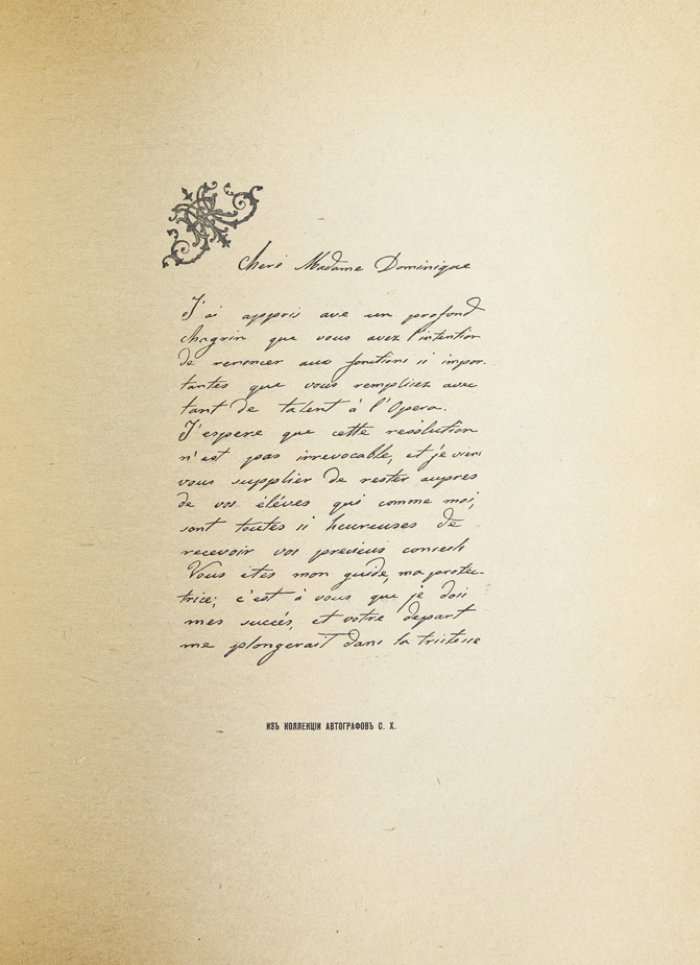 Cheré Madame Dominique
J'ai appris ave un profond
chagrin que vous avez l'intention
de renoncer aux fonctions si impor.
tantes que vous remplissez avec
tant de talent à l'Opera.
J'espere que cette resolution
n'est pas irrevocable, et je viens
vous supplier de rester aupres
de vos éléves qui comme moi,
sont toutes si heureuses de
recevoir vos precieus conseils
Vous etes mon guide, ma protec-
trice; c'est à vous que je dois
mes succés, et votre depart
me plongerait dans la tristesse
ИЗЪ КОЛЛЕКЦІИ АВТОГРАФОВЪ С. Х.